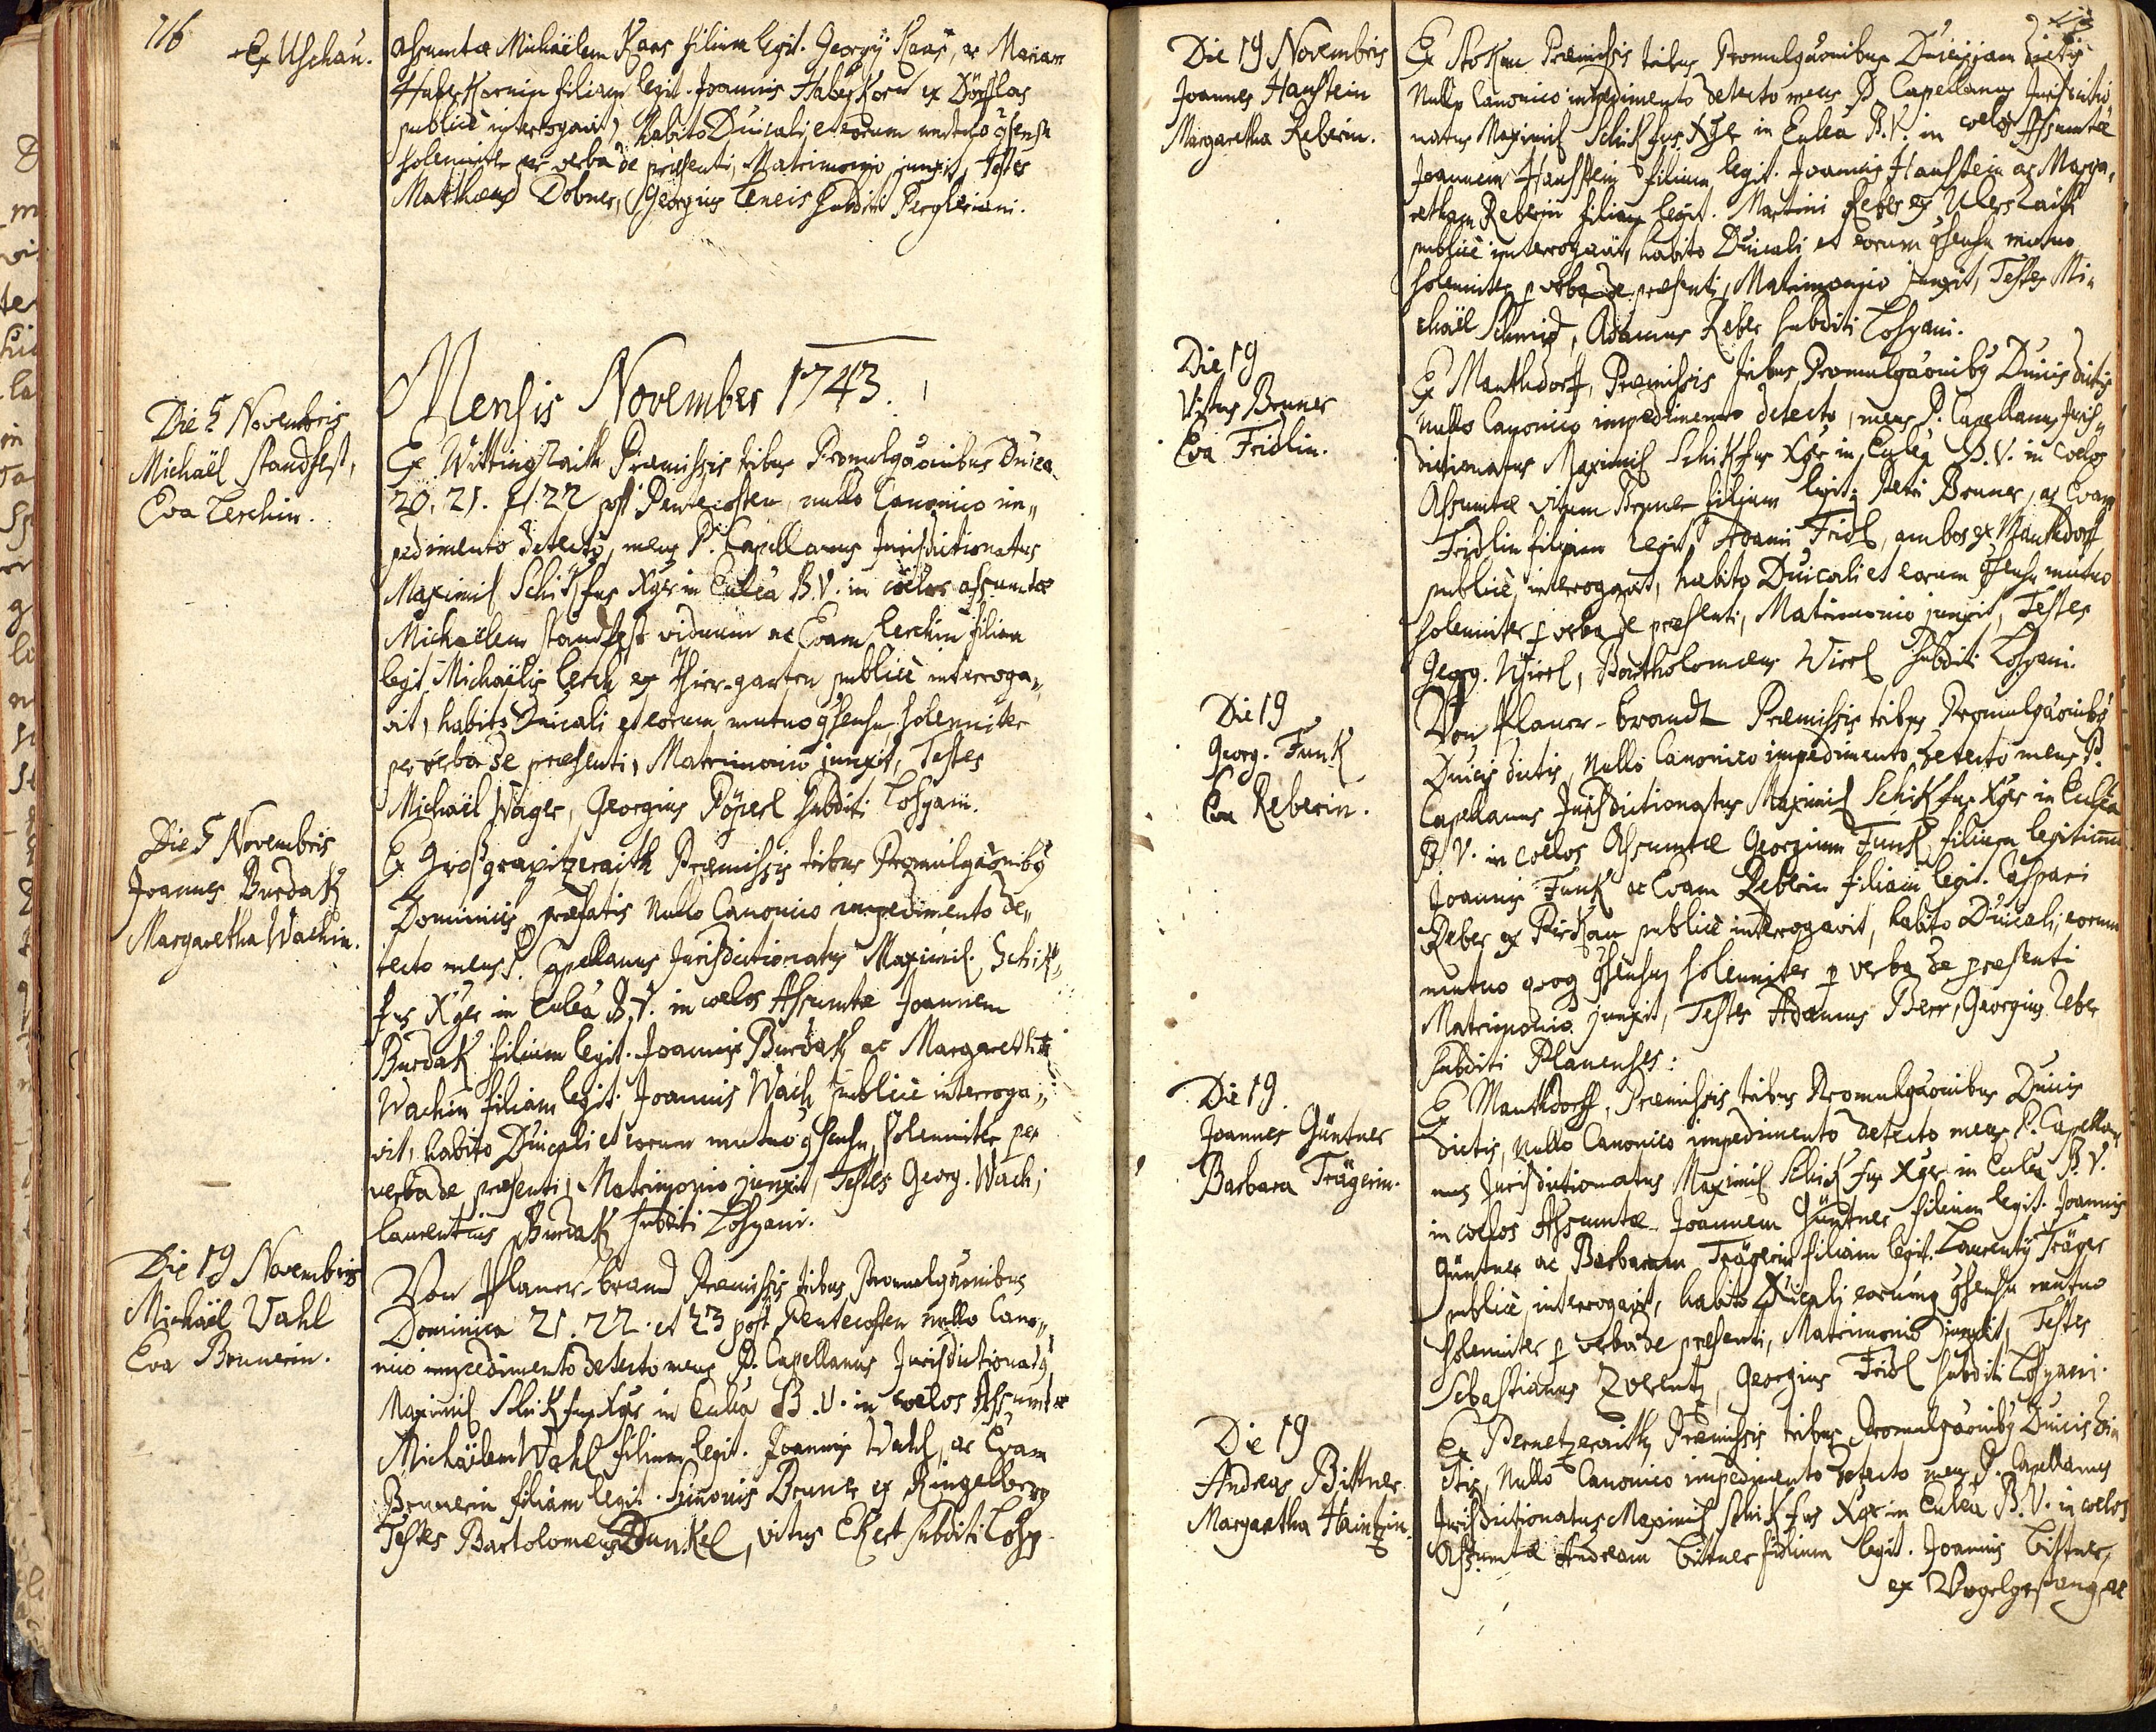 116
Ex Uschau.
assumtae Michaëlem Haas filium legit. Georgÿ Haas, ac Mariam
HaberKornin filiam legit. Joannis HaberKorn ex Dörflas
publicè interrogavit, habito Duicali, et eorum mutuo gsensu
solemniter per verba de praesenti, Matrimonio junxit, Testes
Matthaeus Dobner, Georgius Teneis subditi Pergleriani.
Mensis November 1743.
Die 5 Novembris
Michaël Standfest,
Eva Lerchin.
Ex Wittingraith Praemissis tribus Promulgaonibus Duica
20, 21. et 22 post Pentecosten, nullo Canonico im„
pedimento detecto, meus P. Capellanus Jurisdictionatus
Maximil SchiKfus Xger in Eulea B.V. in coelos assumtae
Michaëlem Standfest viduum ac Evam Lerchin filiam
legit Michaëlis Lerch ex Thier-garten publicè interroga„
vit, habito Duicali et eorum mutuo gsensu, solemniter
per verba de praesenti, Matrimonio junxit, Testes
Michaël Wager, Georgius Pöperl subditi Losyani.
Die 5 Novembris
Joannes BurdaK
Margaretha Wachin.
Ex Großgropitzeraith Praemissis tribus Promulgaonibg
Dominicis praefatis Nullo Canonico impedimento de„
tecto meus P. Capellanus Jurisdictionatus Maximil. SchiK„
fus Xger in Eulea B.V. in coelos Assumtae Joannem
BurdaK filium legit. Joannis BurdaK ac Margaretham
Wachin filiam legit. Joannis Wach publicè interroga„
vit, habito Duicali et eorum mutuo gsensu, solemniter per
verba de praesenti, Matrimonio junxit, Testes Georg. Wach,
Laurentius BurdaK subditi Losyani.
Die 19 Novembris
Michaël Wahl
Eva Brunerin.
Von Planer-brand Praemissis tribus Promulgaonibus
Dominica 21. 22. et 23 post Pentecosten nullo Cano„
nico impedimento detecto meus P. Capellanus Jurisdictionatg
Maximil SchiKfus Xger in Eulea B.V. in coelos Assumtae
Michaëlem Wahl filium legit. Joannis Wahl, ac Evam
Brunerin filiam legit. Simonis Bruner ex Ringelberg
Testes Bartolomeus DunKel, vitus EKert subditi Losy.
Die 19 Novembris
Joannes Hanstein
Margaretha Reberin.
Ex StoKau Praemissis tribus Promulgaonibus Duicis jam dictis
Nullo Canonico impedimento detecto meus P. Capellanus Jurisdictio„
natus Maximil SchiKfus Xger in Eulea B.V. in coelos Assumtae
Joannem Hanstein filium legit. Joannis Hanstein ac Marga„
retham Reberin filiam legit. Martini Reber ex Ulersraith
publicè interrogavit, habito Duicali et eorum gsensu mutuo
solemniter p verba de praesenti, Matrimonio junxit, Testes Mi„
chaël Schmid, Adamus Reber subditi Losyani.
Die 19
Vitus Bruner
Eva Fridlin.
Ex Manthdorf, Praemissis tribus Promulgaonibg Duicis dictis
nullo Canonico impedimento detecto, meus P. Capellanus Juris„
dictionatus Maximil SchiKfus Xger in Eulea B.V. in coelos
Assumtae vitum Bruner filium legit. Petri Bruner, ac Evam
Fridlin filiam legit Adami Fridl, ambos ex Manthdorf
publicè interrogavit, habito Duicali et eorum gsensu mutuo
solemniter p verba de praesenti, Matrimonio junxit, Testes
Georg. Wierl, Bartholomeus Wierl subditi Losyani.
Die 19
Georg. FunK
Eva Reberin.
Von Planer-brandt Praemissis tribus Promulgaonibg
Duicis dictis, Nullo Canonico impedimento detecto meus P.
Capellanus Jurisdictionatus Maximil SchiKfus Xger in Eulea
B.V. in coelos Assumtae Georgium FunK filium legitimum
Joannis FunK ac Evam Reberin filiam legit. Caspari
Reber ex PirKau publicè interrogavit, habito Duicali, eorum
mutuo qvoq gsensu, solemniter p verba de praesenti
Matrimonio junxit, Testes Adamus Berr, Georgius Reber
subditi Planenses:
Die 19.
Joannes Güntner
Barbara Trägerin.
Ex Manthdorff, Praemissis tribus Promulgaonibus Duicis
dictis, Nullo Canonico impedimento detecto meus P. Capella„
nus Jurisdictionatus Maximil SchiKfus Xger in Eulea B.V.
in coelos Assumtae Joannem Güntner filium legit. Joannis
Güntner ac Barbaram Trägerin filiam legit. Laurentÿ Träger
publicè interrogavit, habito Duicali eorumq gsensu mutuo
solemniter p verba de praesenti, Matrimonio junxit, Testes
Sebastianus Zwerentz, Georgius Fridl subditi Losyani.
Die 19
Andreas Bittner
Margaretha Haintzin.
Ex Pernetzeraith Praemissis tribus Promulgaonibg Duicis di„
ctis, Nullo Canonico impedimento detecto meus P. Capellanus
Jurisdictionatus Maximil SchiKfus Xger in Eulea B.V. in coelos
Assumtae Andream Bittner filium legit. Joannis Bittner,
ex Vogelgesang, ac